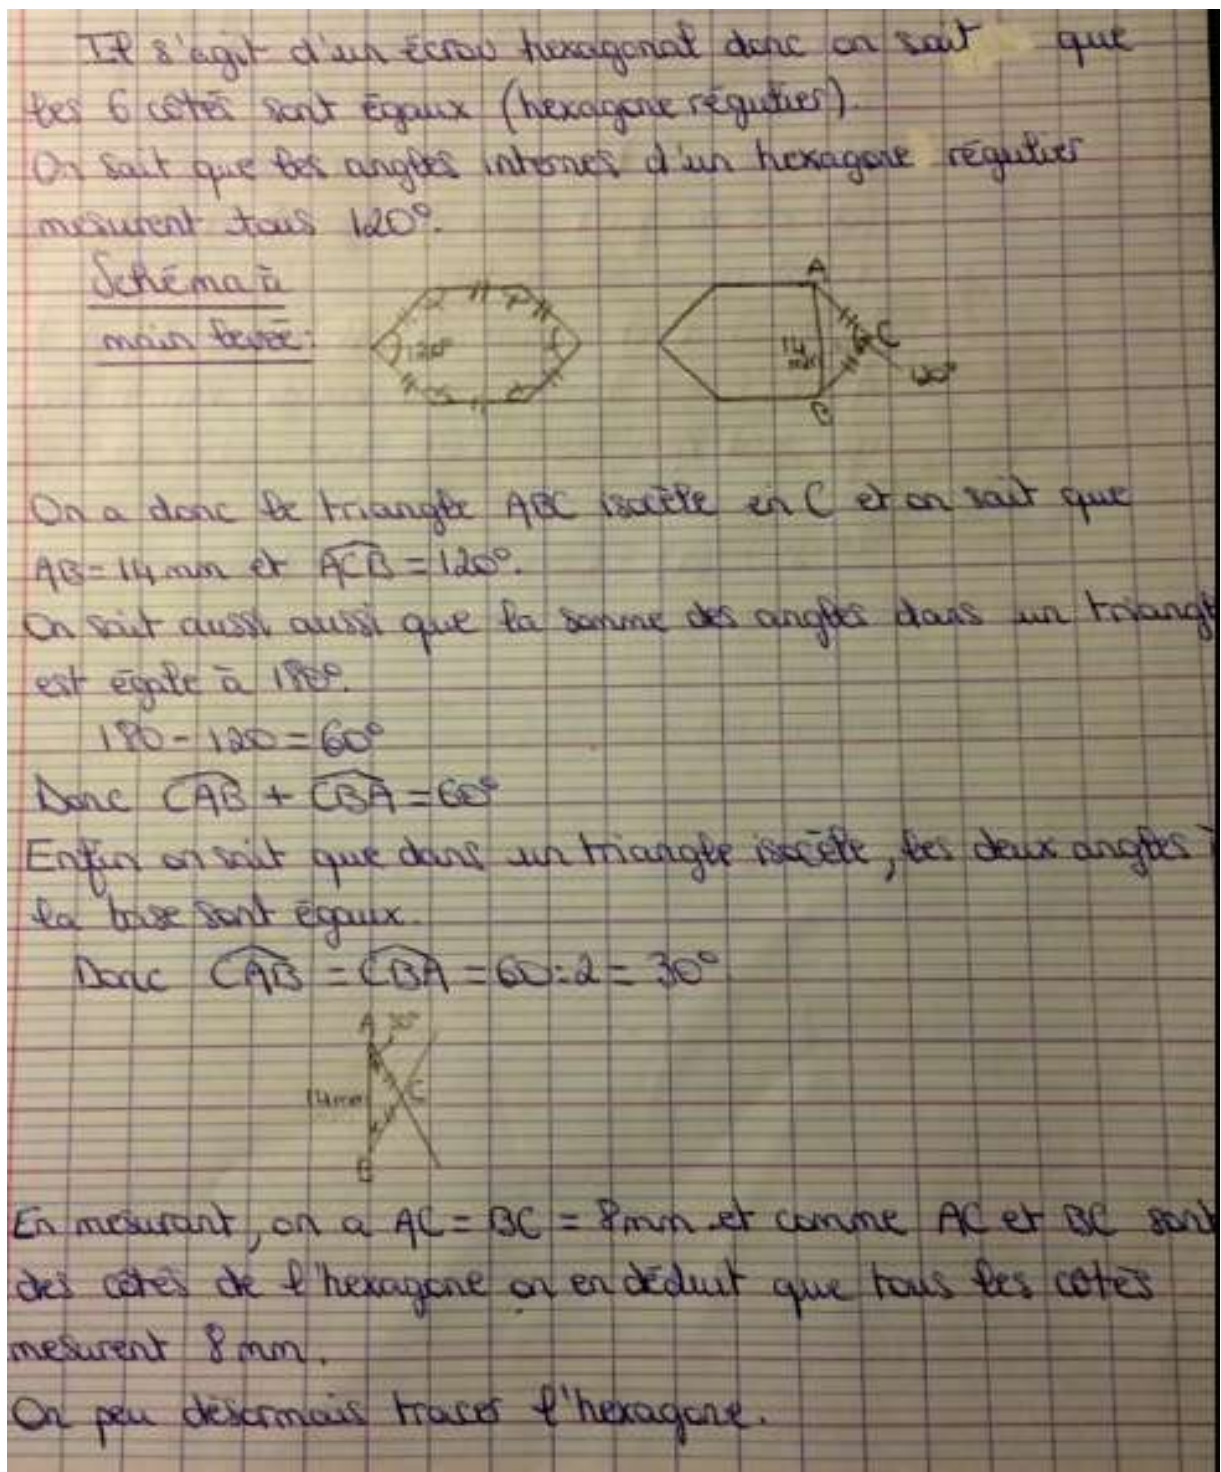 Il s'agit d'un écrou hexagonal donc on sait que
les 6 côtés sont égaux (hexagone régulier).
On sait que les angles internes d'un hexagone régulier
mesurent tous 120°.
Schéma à
main levée:
120°
A
14
mm
C
120°
B
On a donc le triangle ABC isocèle en C et on sait que
AB=14mm et ACB=120°.
On sait aussi aussi que la somme des angles dans un triangl
est égale à 180°.
180-120=60°
Donc CAB + CBA = 60°
Enfin on sait que dans un triangle isocèle, les deux angles à
la base sont égaux.
Donc CAB = CBA = 60:2 = 30°
A 30°
14mm
C
B
En mesurant, on a AC = BC = 8mm et comme AC et BC sont
des côtés de l'hexagone on en déduit que tous les côtés
mesurent 8mm.
On peu désormais tracer l'hexagone.